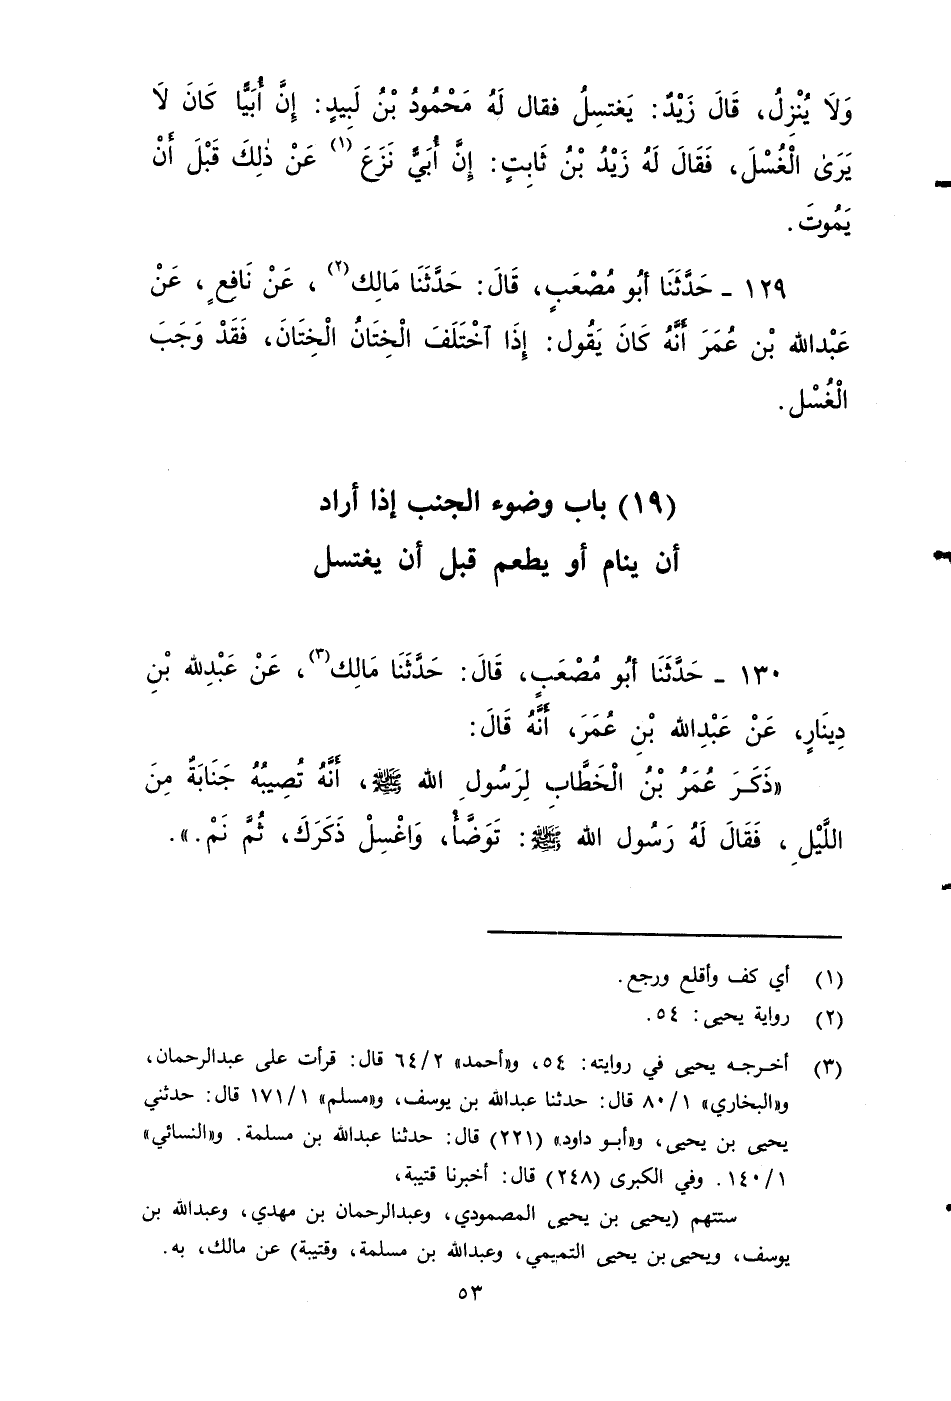 وَلَا يُنْزِلُ، قَالَ زَيْدٌ: يَغتسِلُ فقال لَهُ مَحْمُودُ بْنُ لَبِيدٍ: إِنَّ أُبَيًّا كَانَ لَا
يَرَىٰ الْغُسْلَ، فَقَالَ لَهُ زَيْدُ بْنُ ثَابِتٍ: إِنَّ أُبَيًّ نَزَعَ (١) عَنْ ذٰلِكَ قَبْلَ أَنْ
يَمُوتَ.
١٢٩ ـ حَدَّثَنَا أبُو مُصْعَبٍ، قَالَ: حَدَّثَنَا مَالِك(٢)، عَنْ نَافِعٍ، عَنْ
عَبْدالله بْنِ عُمَرَ أَنَّهُ كَانَ يَقُول: إِذَا ٱخْتَلَفَ الْخِتَانُ الْخِتَانَ، فَقَدْ وَجَبَ
الْغُسْل.
(١٩) باب وضوء الجنب إذا أراد
أن ينام أو يطعم قبل أن يغتسل
١٣٠ ـ حَدَّثَنَا أبُو مُصْعَبٍ، قَالَ: حَدَّثَنَا مَالِك(٣)، عَنْ عَبْدِلله بْنِ
دِينَارٍ، عَنْ عَبْدِالله بْنِ عُمَرَ، أَنَّهُ قَالَ:
«ذَكَرَ عُمَرُ بْنُ الْخَطَّابِ لِرَسُولِ الله ﷺ، أَنَّهُ تُصِيبُهُ جَنَابَةٌ مِنَ
اللَّيْلِ، فَقَالَ لَهُ رَسُول الله ﷺ: تَوَضَّأْ، وَاغْسِلْ ذَكَرَكَ، ثُمَّ نَمْ.».
(١) أي كف وأقلع ورجع.
(٢) رواية يحيى: ٥٤.
(٣) أخرجه يحيى في روايته: ٥٤، و«أحمد» ٦٤/٢ قال: قرأت على عبدالرحمان،
و«البخاري» ٨٠/١ قال: حدثنا عبدالله بن يوسف، و«مسلم» ١٧١/١ قال: حدثني
يحيى بن يحيى، و«أبو داود» (٢٢١) قال: حدثنا عبدالله بن مسلمة. و«النسائي»
١٤٠/١. وفي الكبرى (٢٤٨) قال: أخبرنا قتيبة،
ستتهم (يحيى بن يحيى المصمودي، وعبدالرحمان بن مهدي، وعبدالله بن
يوسف، ويحيى بن يحيى التميمي، وعبدالله بن مسلمة، وقتيبة) عن مالك، به.
٥٣